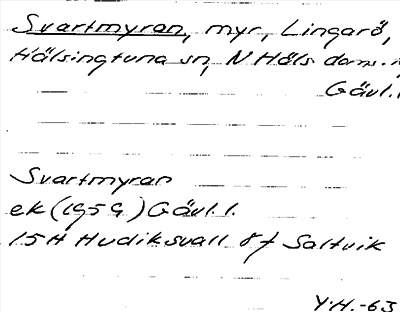 Svartmyran, myr, Lingarö,
Hälsingtuna sn, N Häls doms.
Gävl.
Svartmyran
ek (1959) Gävl. l.
15H Hudiksvall 8f Saltvik
Y.H.-63